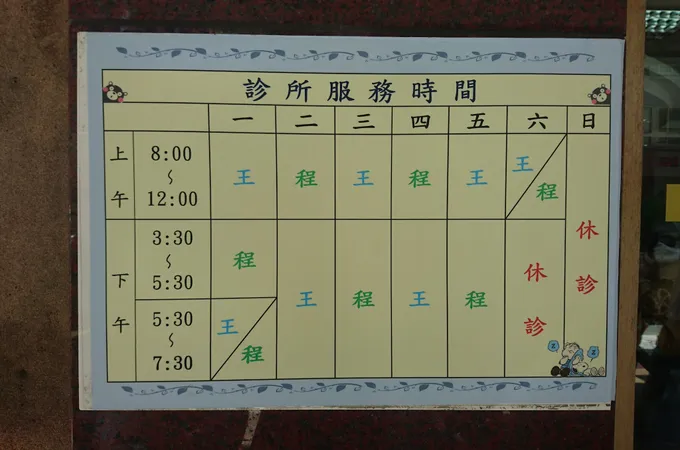 診所服務時間
一 二 三 四 五 六 日
上午 8:00～12:00 王 程 王 程 王 王 程 休診
下午 3:30～5:30 程 王 程 王 程 休診
5:30～7:30 王 程
z z